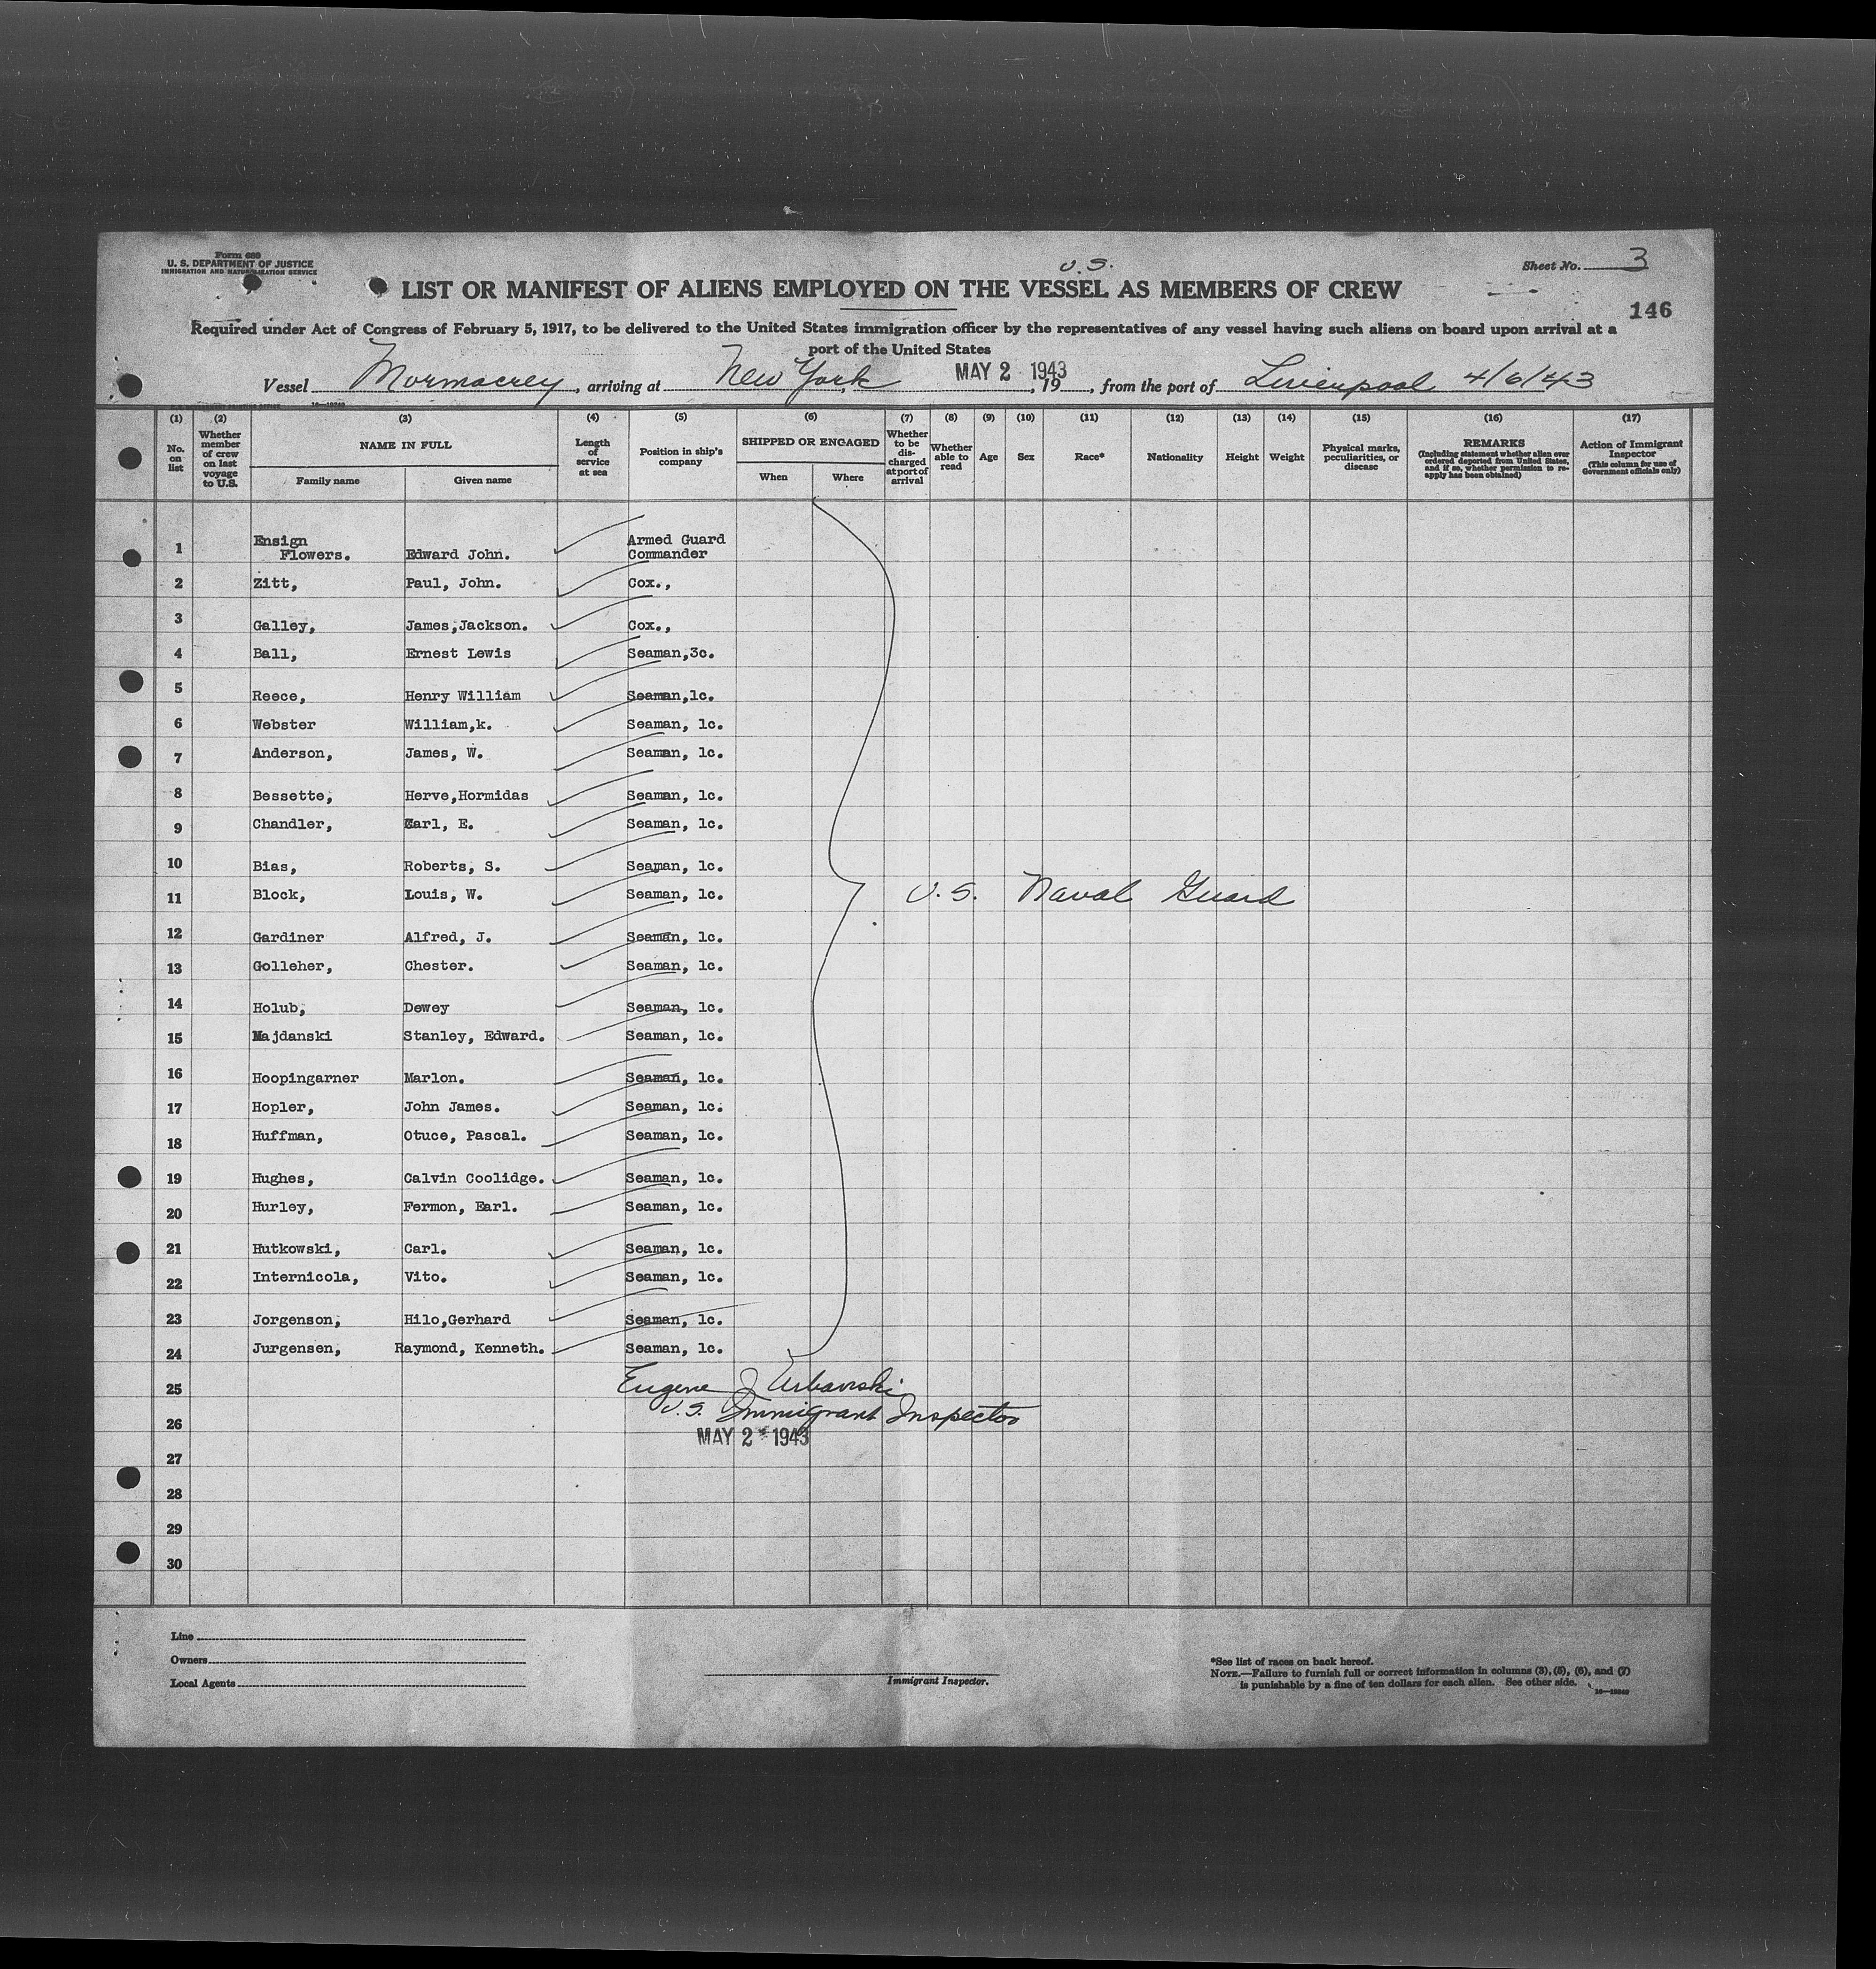 Form 680
U. S. DEPARTMENT OF JUSTICE
IMMIGRATION AND NATURALIZATION SERVICE
Sheet No. 3
U. S.
LIST OR MANIFEST OF ALIENS EMPLOYED ON THE VESSEL AS MEMBERS OF CREW
146
Required under Act of Congress of February 5, 1917, to be delivered to the United States immigration officer by the representatives of any vessel having such aliens on board upon arrival at a
port of the United States
Vessel Mormacrey, arriving at New York, MAY 2 1943, 19, from the port of Liverpool 4/6/43
(1) (2) (3) (4) (5) (6) (7) (8) (9) (10) (11) (12) (13) (14) (15) (16) (17)
No. on list
Whether member of crew on last voyage to U.S.
NAME IN FULL
Family name Given name
Length of service at sea
Position in ship's company
SHIPPED OR ENGAGED
When Where
Whether to be discharged at port of arrival
Whether able to read
Age
Sex
Race*
Nationality
Height
Weight
Physical marks, peculiarities, or disease
REMARKS
(Including statement whether alien ever ordered deported from United States, and if so, whether permission to reapply has been obtained)
Action of Immigrant Inspector
(This column for use of Government officials only)
1 Ensign Flowers. Edward John. Armed Guard Commander
2 Zitt, Paul, John. Cox.,
3 Galley, James,Jackson. Cox.,
4 Ball, Ernest Lewis Seaman,3c.
5 Reece, Henry William Seaman,1c.
6 Webster William,k. Seaman, 1c.
7 Anderson, James, W. Seaman, 1c.
8 Bessette, Herve,Hormidas Seaman, 1c.
9 Chandler, Earl, E. Seaman, 1c.
10 Bias, Roberts, S. Seaman, 1c.
11 Block, Louis, W. Seaman, 1c. U. S. Naval Guard
12 Gardiner Alfred, J. Seaman, 1c.
13 Golleher, Chester. Seaman, 1c.
14 Holub, Dewey Seaman, 1c.
15 Majdanski Stanley, Edward. Seaman, 1c.
16 Hoopingarner Marlon. Seaman, 1c.
17 Hopler, John James. Seaman, 1c.
18 Huffman, Otuce, Pascal. Seaman, 1c.
19 Hughes, Calvin Coolidge. Seaman, 1c.
20 Hurley, Fermon, Earl. Seaman, 1c.
21 Hutkowski, Carl. Seaman, 1c.
22 Internicola, Vito. Seaman, 1c.
23 Jorgenson, Hilo,Gerhard Seaman, 1c.
24 Jurgensen, Raymond, Kenneth. Seaman, 1c.
25 Eugene J Urbanski
26 U. S. Immigrant Inspector
MAY 2 1943
27
28
29
30
Line
Owners
Local Agents
Immigrant Inspector.
*See list of races on back hereof.
NOTE.—Failure to furnish full or correct information in columns (3), (5), (6), and (7)
is punishable by a fine of ten dollars for each alien. See other side.